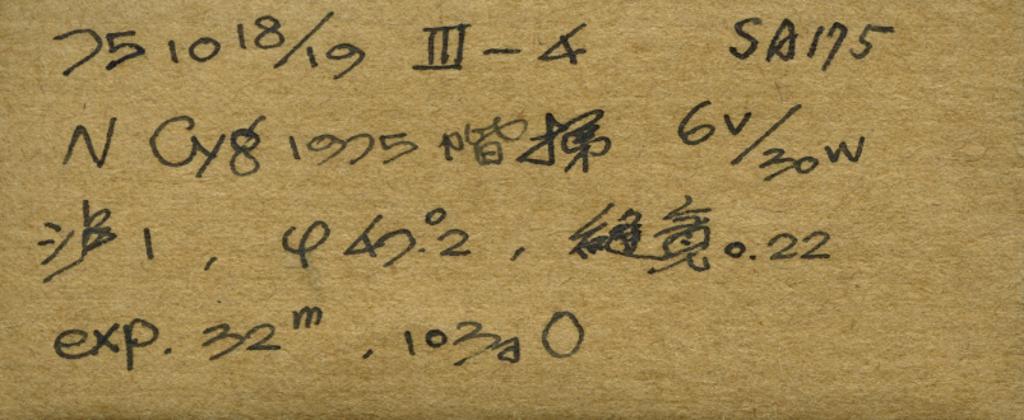 75 10 18/19 III-4 SA175
N Cyg 1975 階梯 6V/30W
波1, φ47.°2, 縫寬0.22
exp. 32ᵐ. 103aO